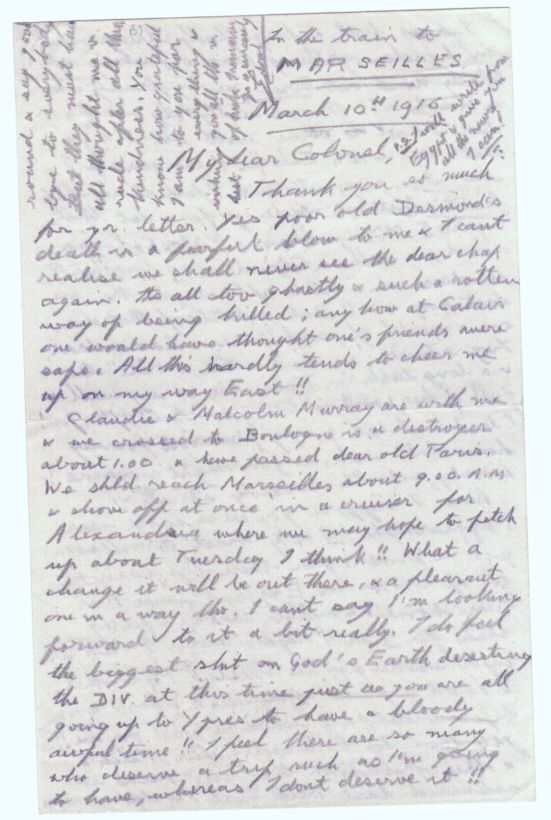 In the train to
MARSEILLES
March 10th 1916
My dear Colonel,
Thank you so much
for yr. letter. Yes poor old Desmond's
death is a fearful blow to me & I cant
realise we shall never see the dear chap
again. Its all too ghastly & such a rotten
way of being killed; any how at Calais
one would have thought one's friends were
safe. All this hardly tends to cheer me
up on my way East!!
Claudie & Malcolm Murray are with me
& we crossed to Boulogne in a destroyer
about 1.00. & have passed dear old Paris.
We shld reach Marseilles about 9.00. A.M
& shove off at once in a cruiser for
Alexandria where we may hope to fetch
up about Tuesday I think!! What a
change it will be out there, & a pleasant
one in a way tho. I cant say I'm looking
forward to it a bit really. I do feel
the biggest shit on God's Earth deserting
the DIV. at this time just as you are all
going up to Ypres to have a bloody
awful time!! I feel there are so many
who deserve a trip such as I'm going
to have, whereas I dont deserve it!!
round & say good
bye to everybody
but they must have
all thought me v
rude after all their
kindness. You
know how grateful
I am to you for
everything &
you all the v
best
P.S I will write from
Egypt & give you
all the news
I can!